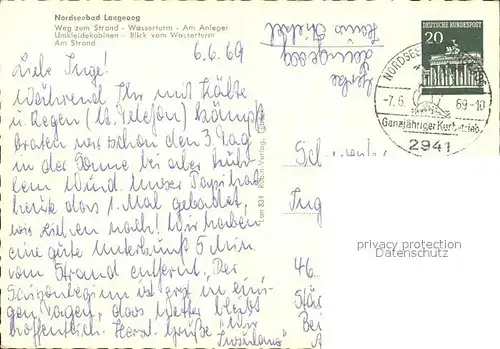 Nordseebad Langeoog
Weg zum Strand - Wasserturm - Am Anleger
Umkleidekabinen - Blick vom Wasserturm
Am Strand
6.6.69
Liebe Inge!
Während Ihr mit Kälte
u. Regen (lt. Telefon) kämpft
braten wir schon den 3. Tag
in der Sonne bei aber küh-
lem Wind. Unser Papi hat
heute das 1. Mal gebadet,
wir ziehen nach! Wir haben
eine gute Unterkunft 5 Min
vom Strand entfernt. Der
Saisonbeginn ist erst in eini-
gen Tagen, das Wetter bleibt
hoffentlich. Herzl. Grüße
Haus
Langeoog
DEUTSCHE BUNDESPOST
20
NORDSEE
-7.6. 69-10
Ganzjähriger Kurbetrieb
2941
Schw
Ing
46
Stä
Bei
privacy protection
Datenschutz